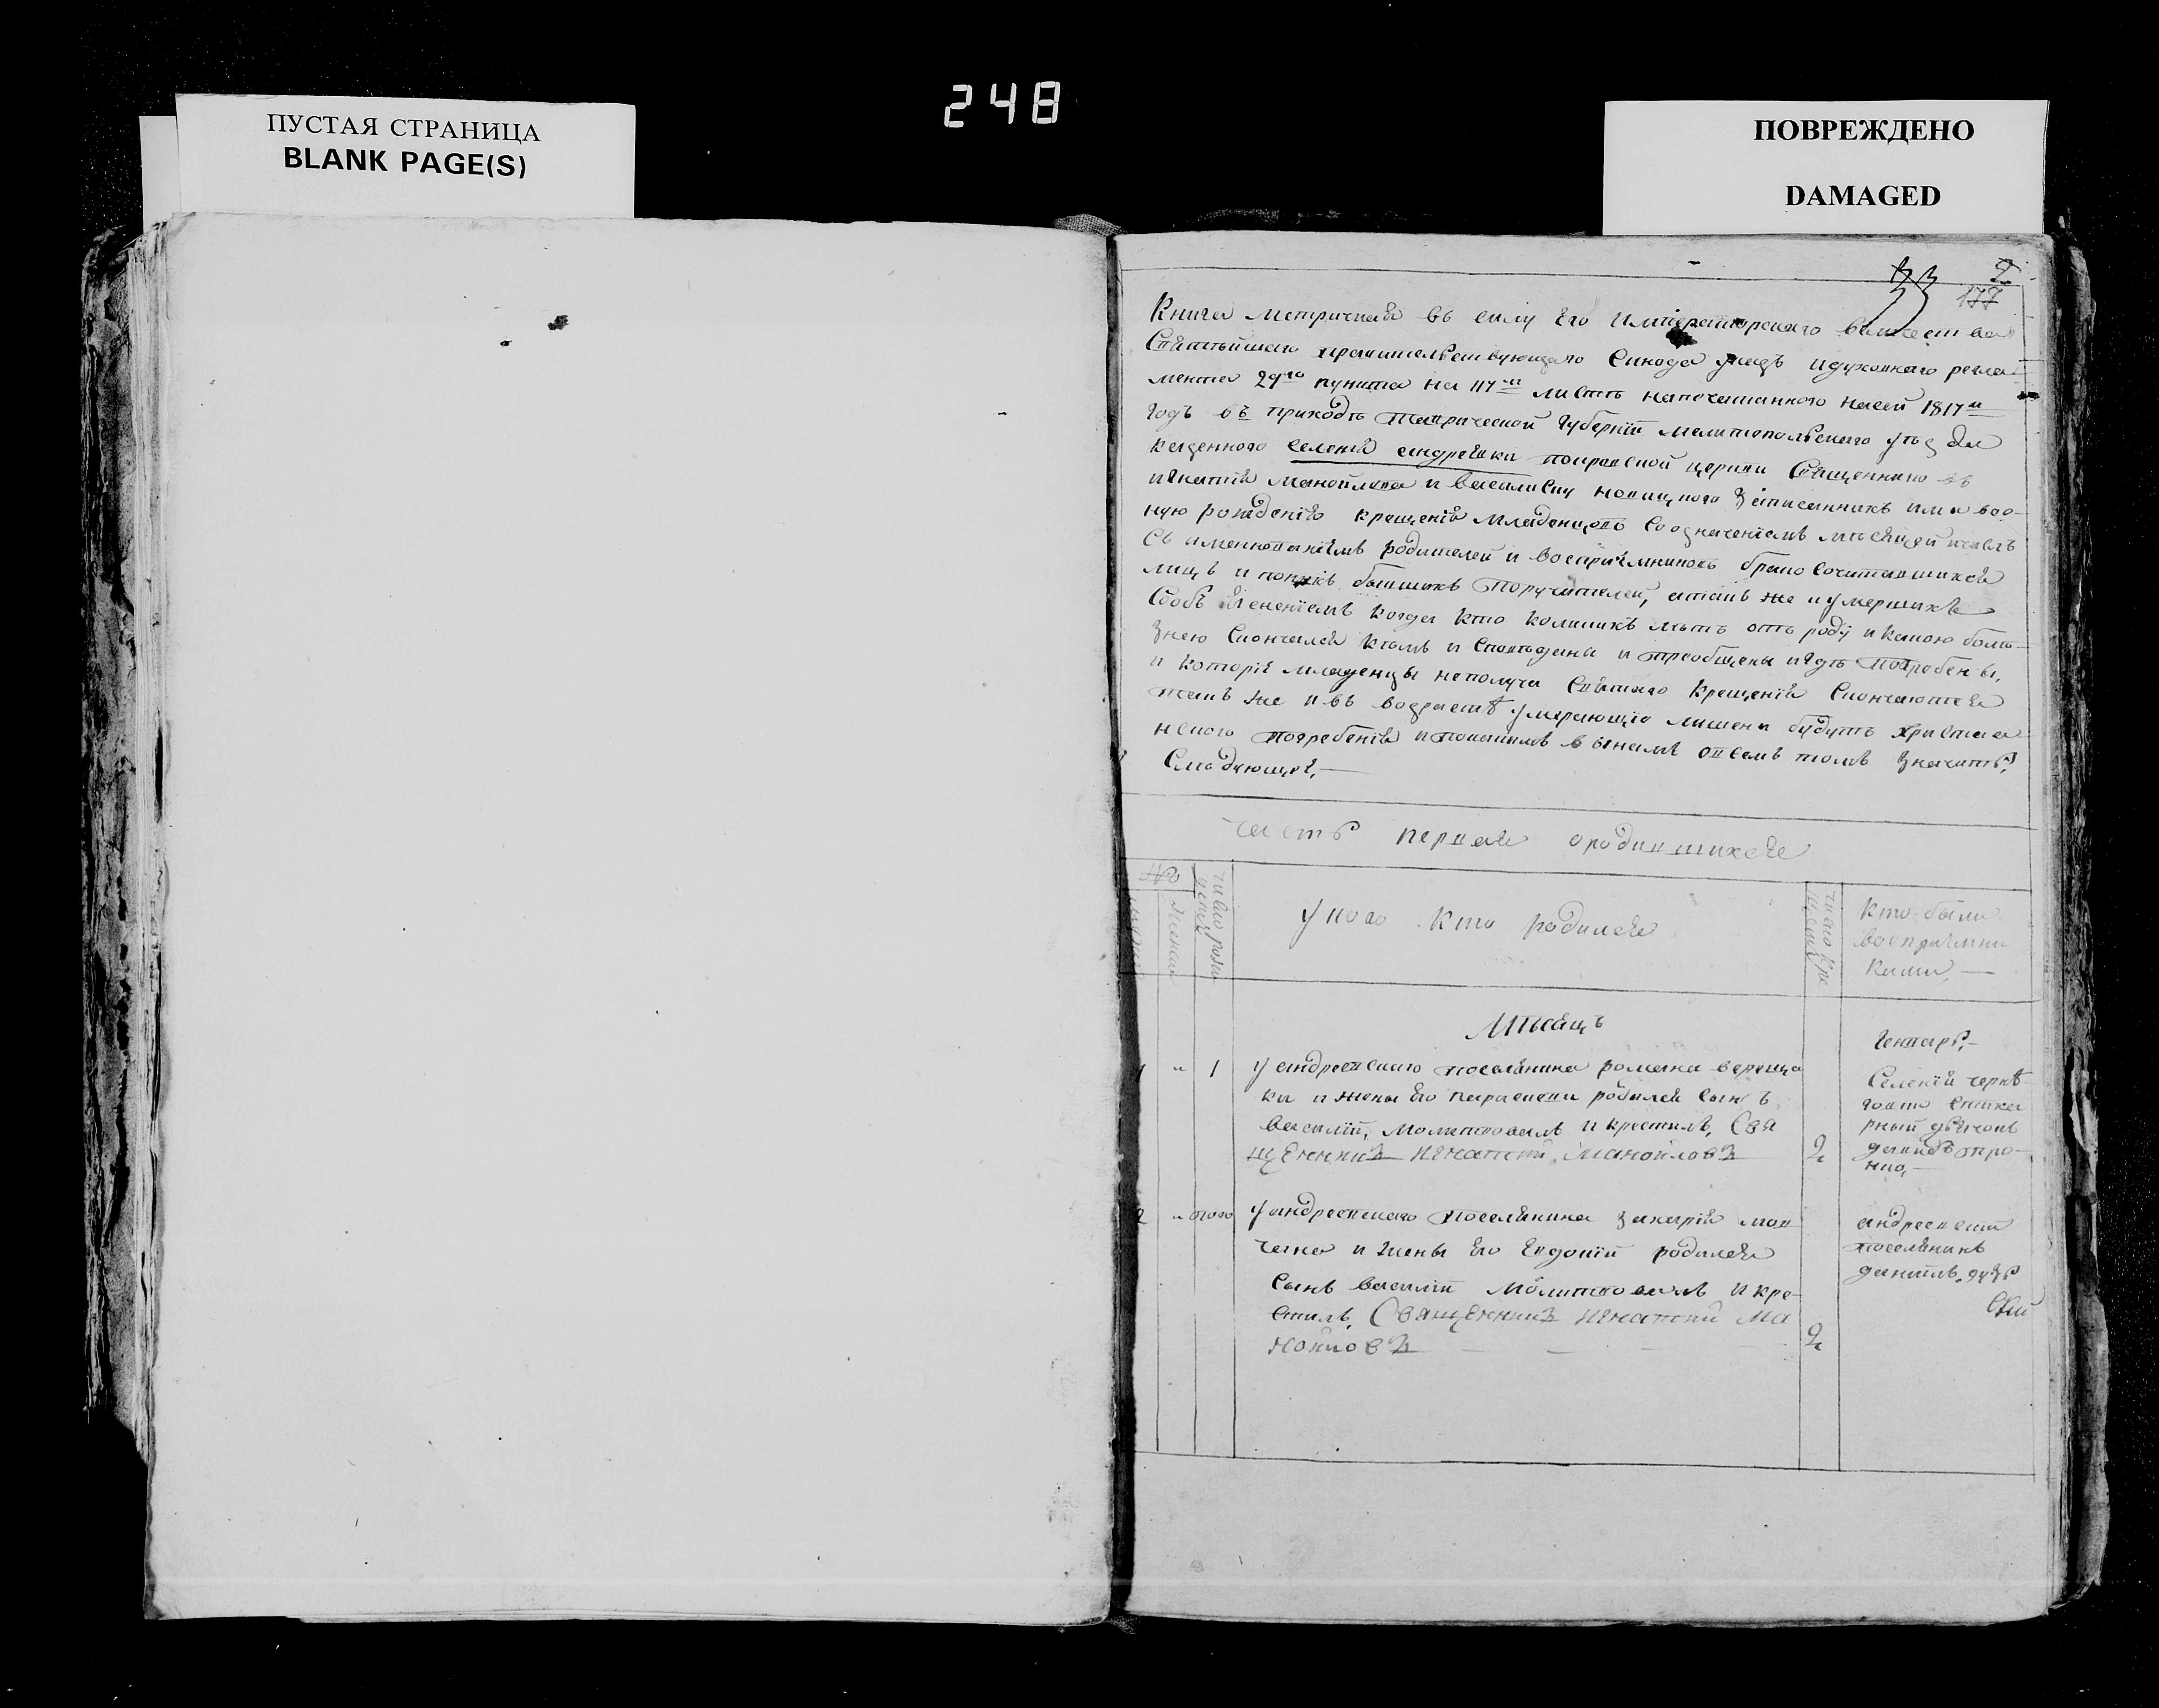 248
ПУСТАЯ СТРАНИЦА
BLANK PAGE(S)
ПОВРЕЖДЕНО
DAMAGED
33
177
Книга метрическая въ силу Его Императорскаго величества
Святѣйшаго правительствующаго Синода указъ идуховнаго регла
мента 29го пункта на 117м листѣ напечатанного насей 1817й
Годъ въ приходѣ Таврической Губерніи мелитопольского уѣзда
казенного селенія андреѣвки покровской церкви Священнику
игнатію манойлова и василиску новицкого Записанныхъ
ную рожденію крещенію младенцовъ Соозначеніемъ мѣсяца и числъ
Съ именованіемъ родителей и воспріемниковъ брако сочитавшихся
лицъ и поних бывшихъ поручителей, атакъ же иумершихъ
Собъ явленіемъ когда кто коликихъ лѣтъ отъ роду и какою болѣ-
знею Скончался ктому и Сповѣданы и преобщены игдѣ Погребены,
и которіе младенцы неполуча Святаго Крещенія Скончаются
такъ же ивъ возрастѣ умирающіе лишены будутъ христіа
нского погребенія и покакимъ винамъ овсемъ томъ Значитъ,
Слѣдующее,
часть первая ородившихся
№
у кого кто родился
Кто были
воспріемни
ками,
Мѣсяцъ
Генварь,
1 „ 1
у андреевского поселянина романа вереща
ки и жены Его параскеви родился сынъ
василій, молитвовалъ и крестилъ, Свя
щенникъ Игнатій Манойловъ
2
Селенія черне
говто
рный дьячокъ
давидъ тро-
ниц,
2 „ того
у андреевского поселянина захарія мов
чана и жены Его Евдокіи родился
Сынъ василій Молитвовалъ и кре-
стилъ, Священникъ Игнатій Ма
нойловъ
2
андреевски
поселянинъ
данилъ дузь
скій